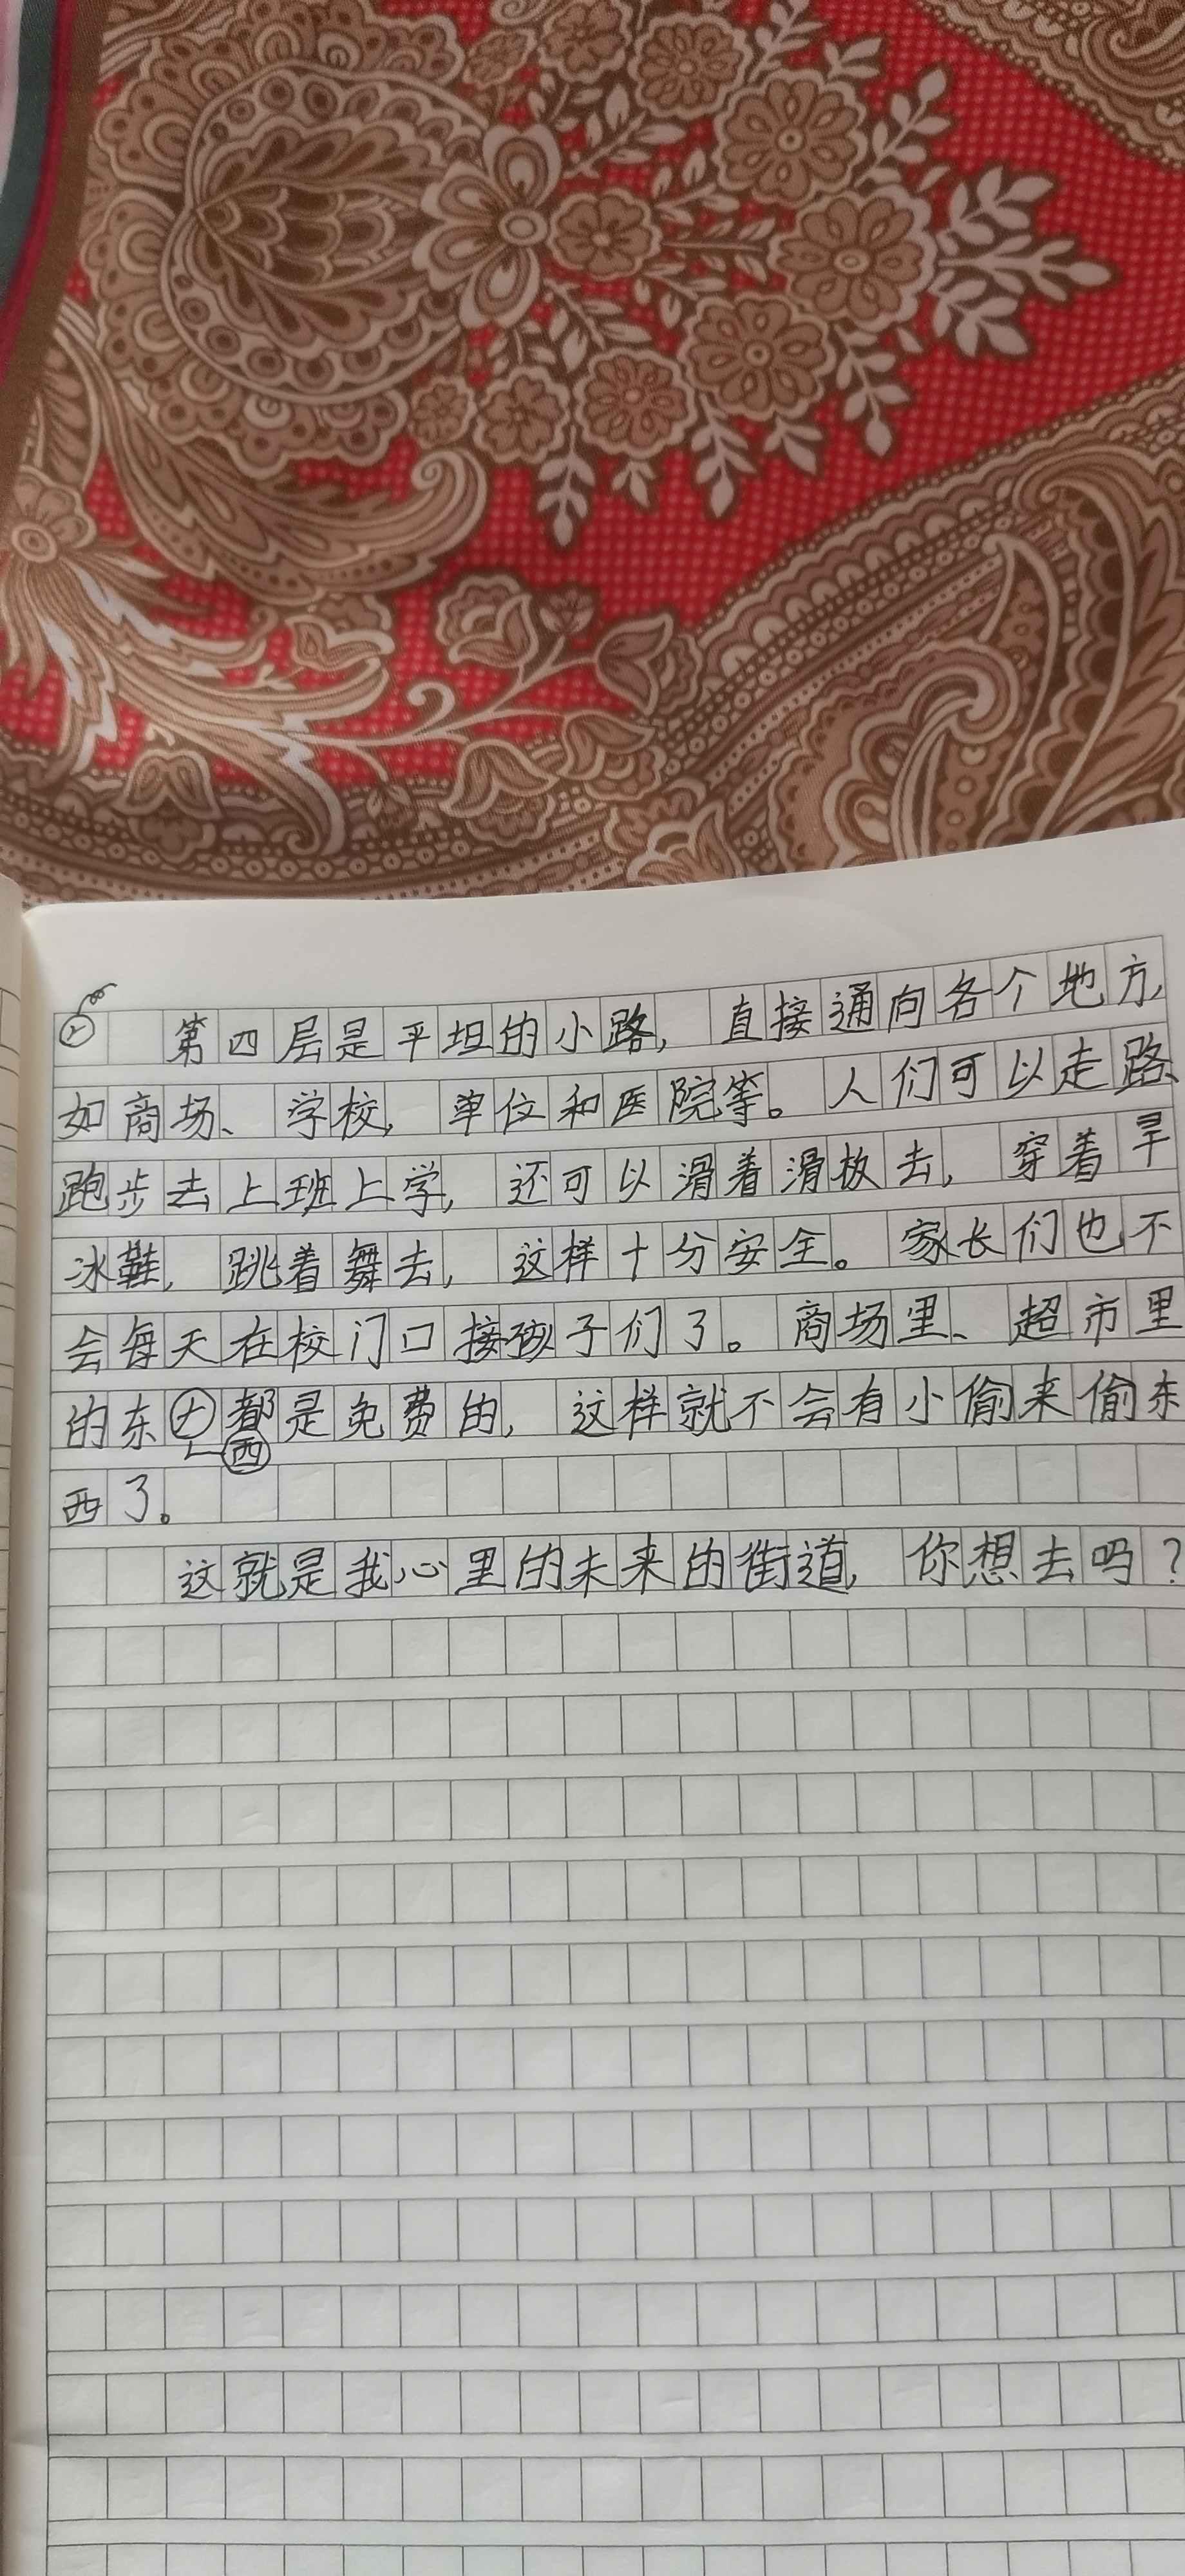 第四层是平坦的小路，直接通向各个地方，
如商场、学校，单位和医院等。人们可以走路、
跑步去上班上学，还可以滑着滑板去，穿着旱
冰鞋，跳着舞去，这样十分安全。家长们也不
会每天在校门口接孩子们了。商场里、超市里
的东西都是免费的，这样就不会有小偷来偷东
西了。
这就是我心里的未来的街道，你想去吗？